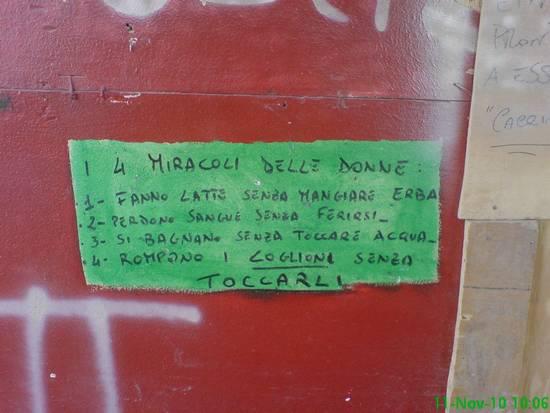 I 4 MIRACOLI DELLE DONNE:
.1- FANNO LATTE SENZA MANGIARE ERBA
.2- PERDONO SANGUE SENZA FERIRSI_
.3- SI BAGNANO SENZA TOCCARE ACQUA_
.4- ROMPONO I COGLIONI SENZA
TOCCARLI
A ESS
11-Nov-10 10:06